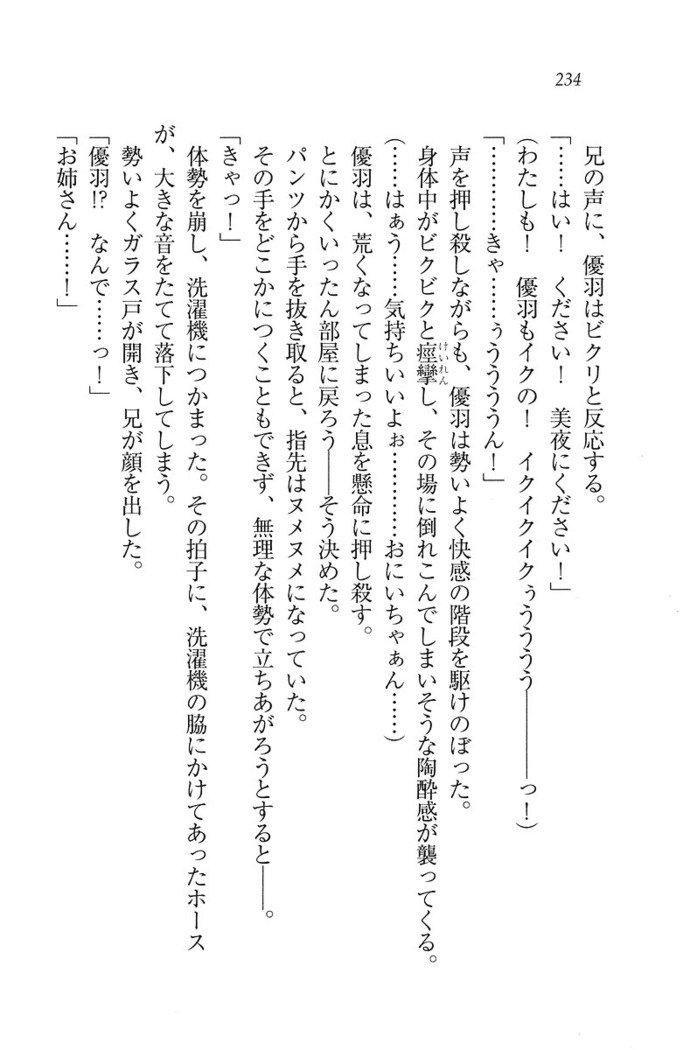 234
兄の声に、優羽はビクリと反応する。
「……はい！　ください！　美夜にください！」
（わたしも！　優羽もイクの！　イクイクイクぅうううう――――っ！）
「…………きゃ……ぅううううん！」
声を押し殺しながらも、優羽は勢いよく快感の階段を駆けのぼった。
身体中がビクビクと痙攣けいれんし、その場に倒れこんでしまいそうな陶酔感が襲ってくる。
（……はぁう……気持ちいいよぉ…………おにいちゃぁん……）
優羽は、荒くなってしまった息を懸命に押し殺す。
とにかくいったん部屋に戻ろう――そう決めた。
パンツから手を抜き取ると、指先はヌメヌメになっていた。
その手をどこかにつくこともできず、無理な体勢で立ちあがろうとすると――。
「きゃっ！」
体勢を崩し、洗濯機につかまった。その拍子に、洗濯機の脇にかけてあったホース
が、大きな音をたてて落下してしまう。
勢いよくガラス戸が開き、兄が顔を出した。
「優羽!?　なんで……っ！」
「お姉さん……！」